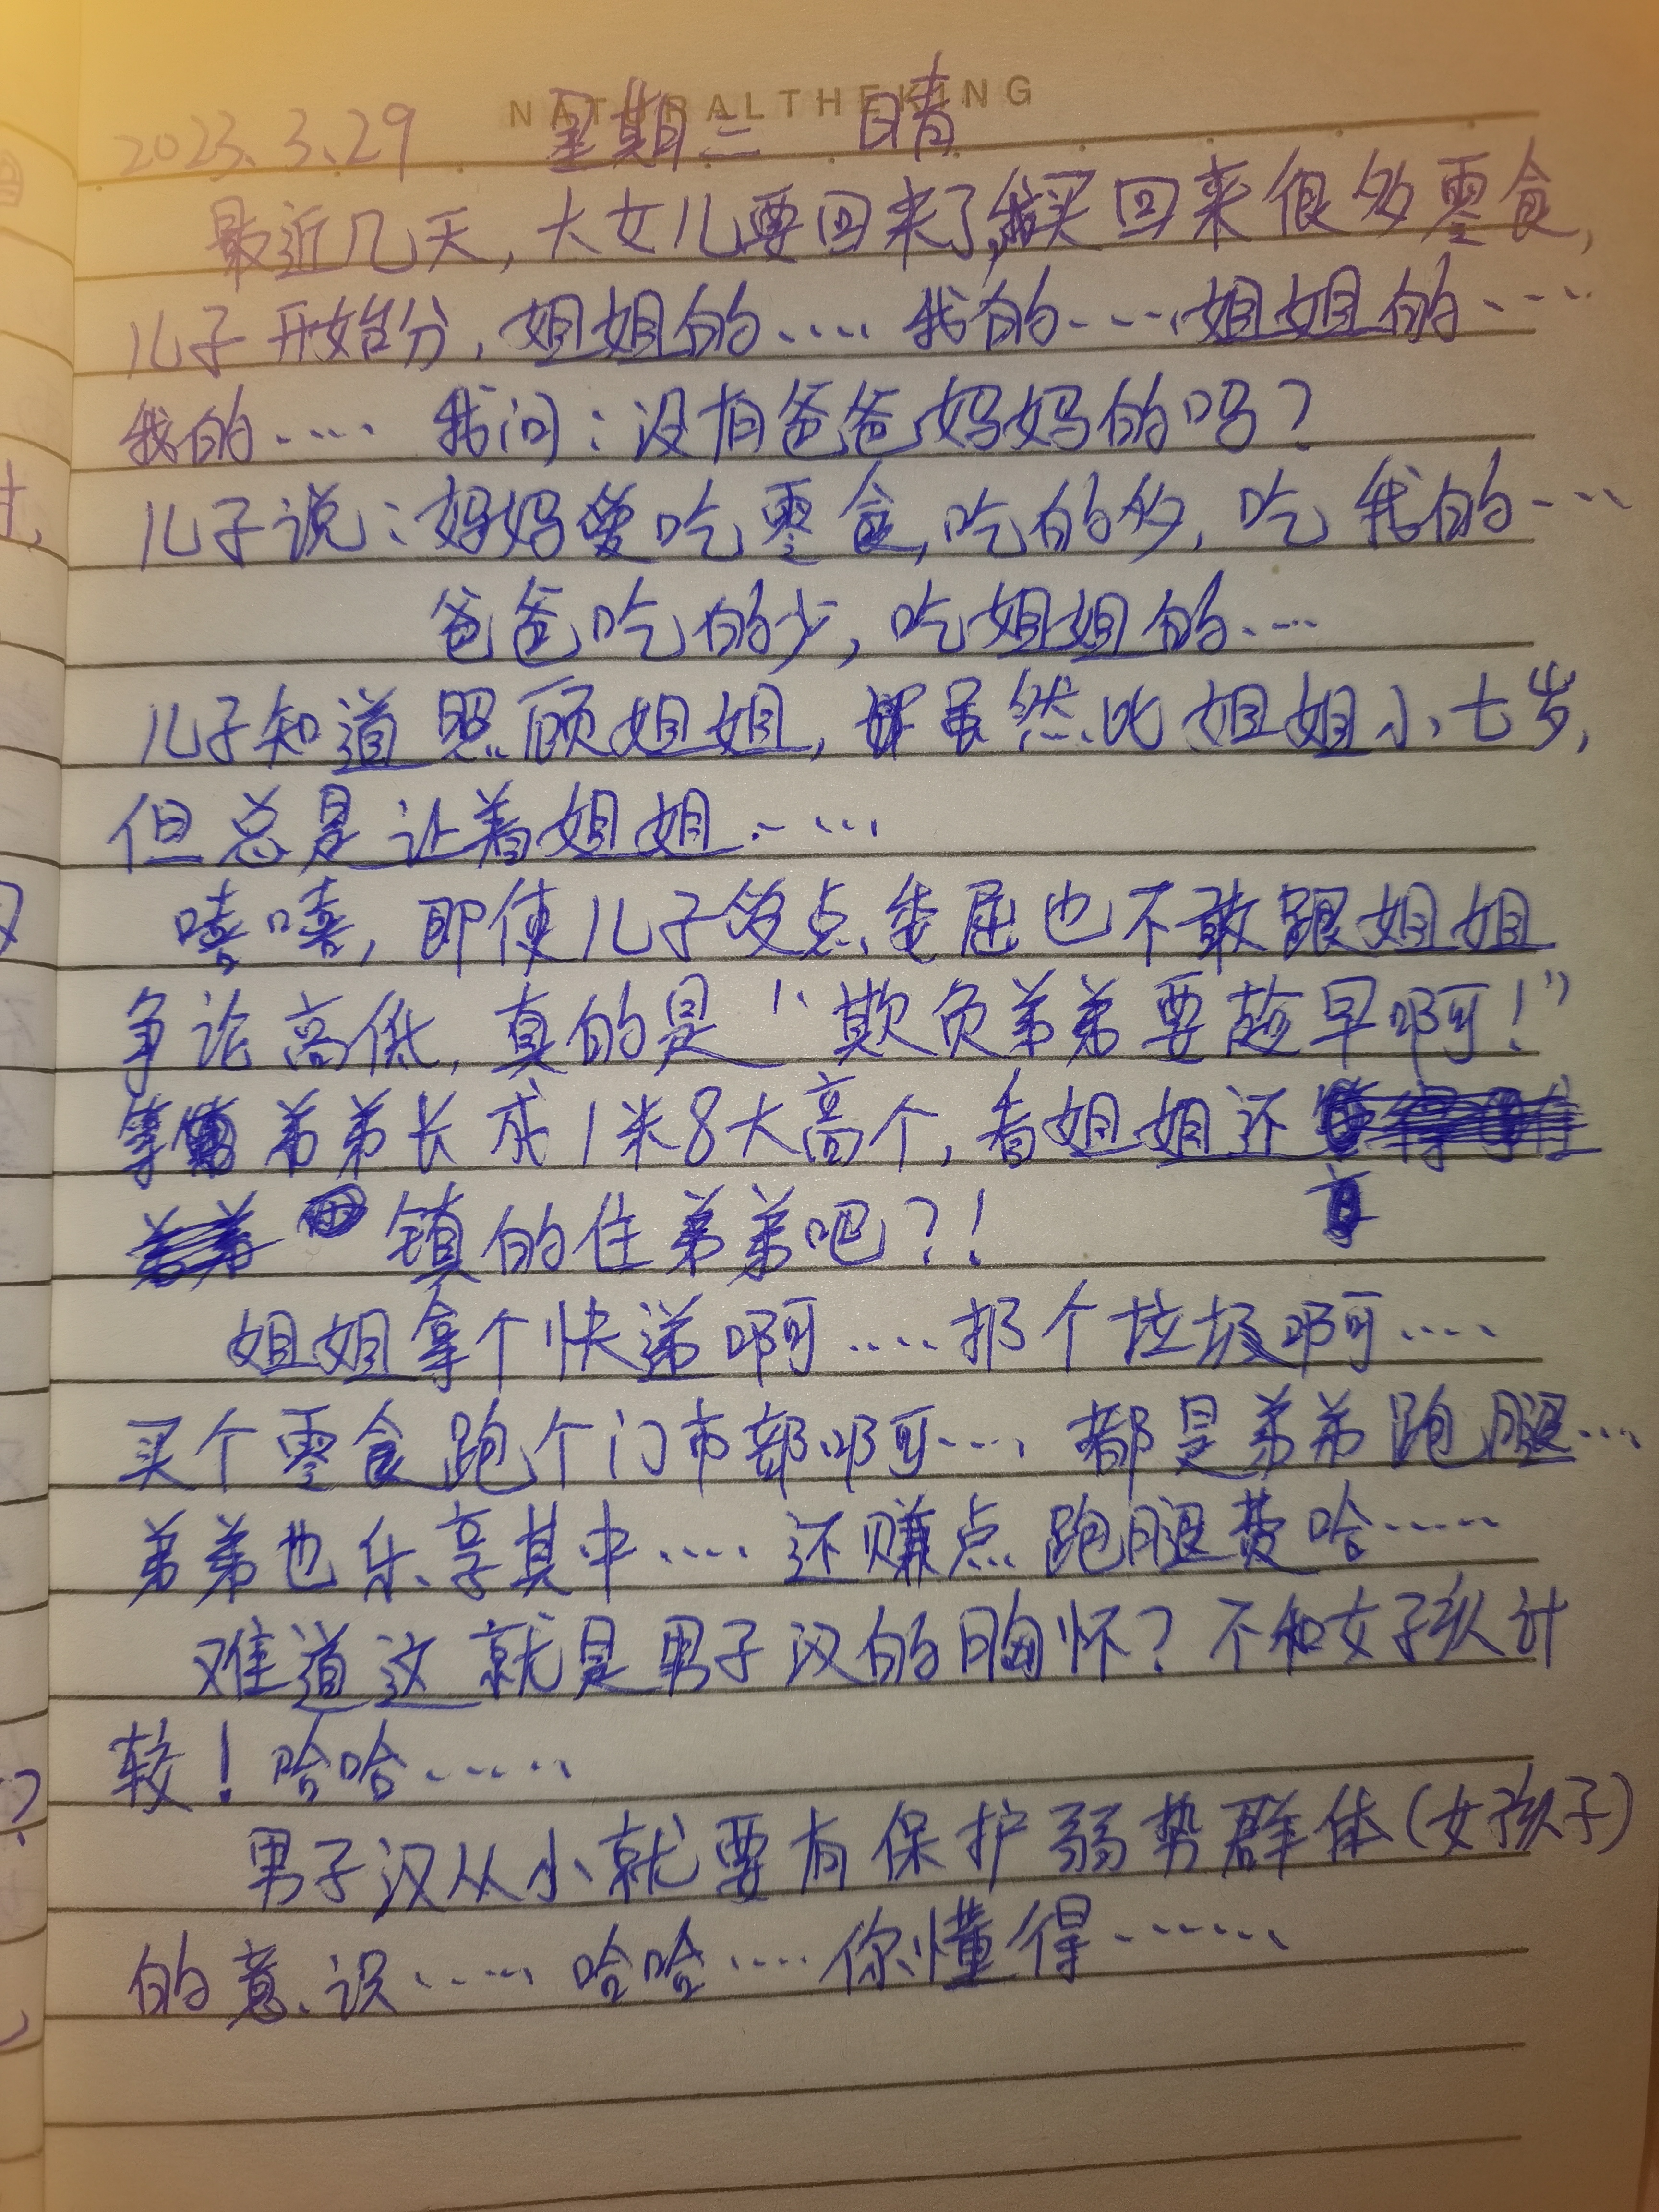 NATURALTHEKING
2023.3.29 星期三 晴
最近几天,大女儿要回来了,我买回来很多零食,
儿子开始分,姐姐的……我的……姐姐的……
我的…… 我问:没有爸爸妈妈的吗?
儿子说:妈妈爱吃零食,吃的多,吃我的……
爸爸吃的少,吃姐姐的……
儿子知道照顾姐姐,虽然比姐姐小七岁,
但总是让着姐姐……
嘻嘻,即使儿子受点委屈也不敢跟姐姐
争论高低,真的是“欺负弟弟要趁早啊!”
等弟弟长成1米8大高个,看姐姐还
镇的住弟弟吧?!
姐姐拿个快递啊……扔个垃圾啊……
买个零食跑个门市部啊……都是弟弟跑腿……
弟弟也乐享其中……还赚点跑腿费哈……
难道这就是男子汉的胸怀?不和女子孩计
较!哈哈……
男子汉从小就要有保护弱势群体(女孩子)
的意识……哈哈……你懂得……